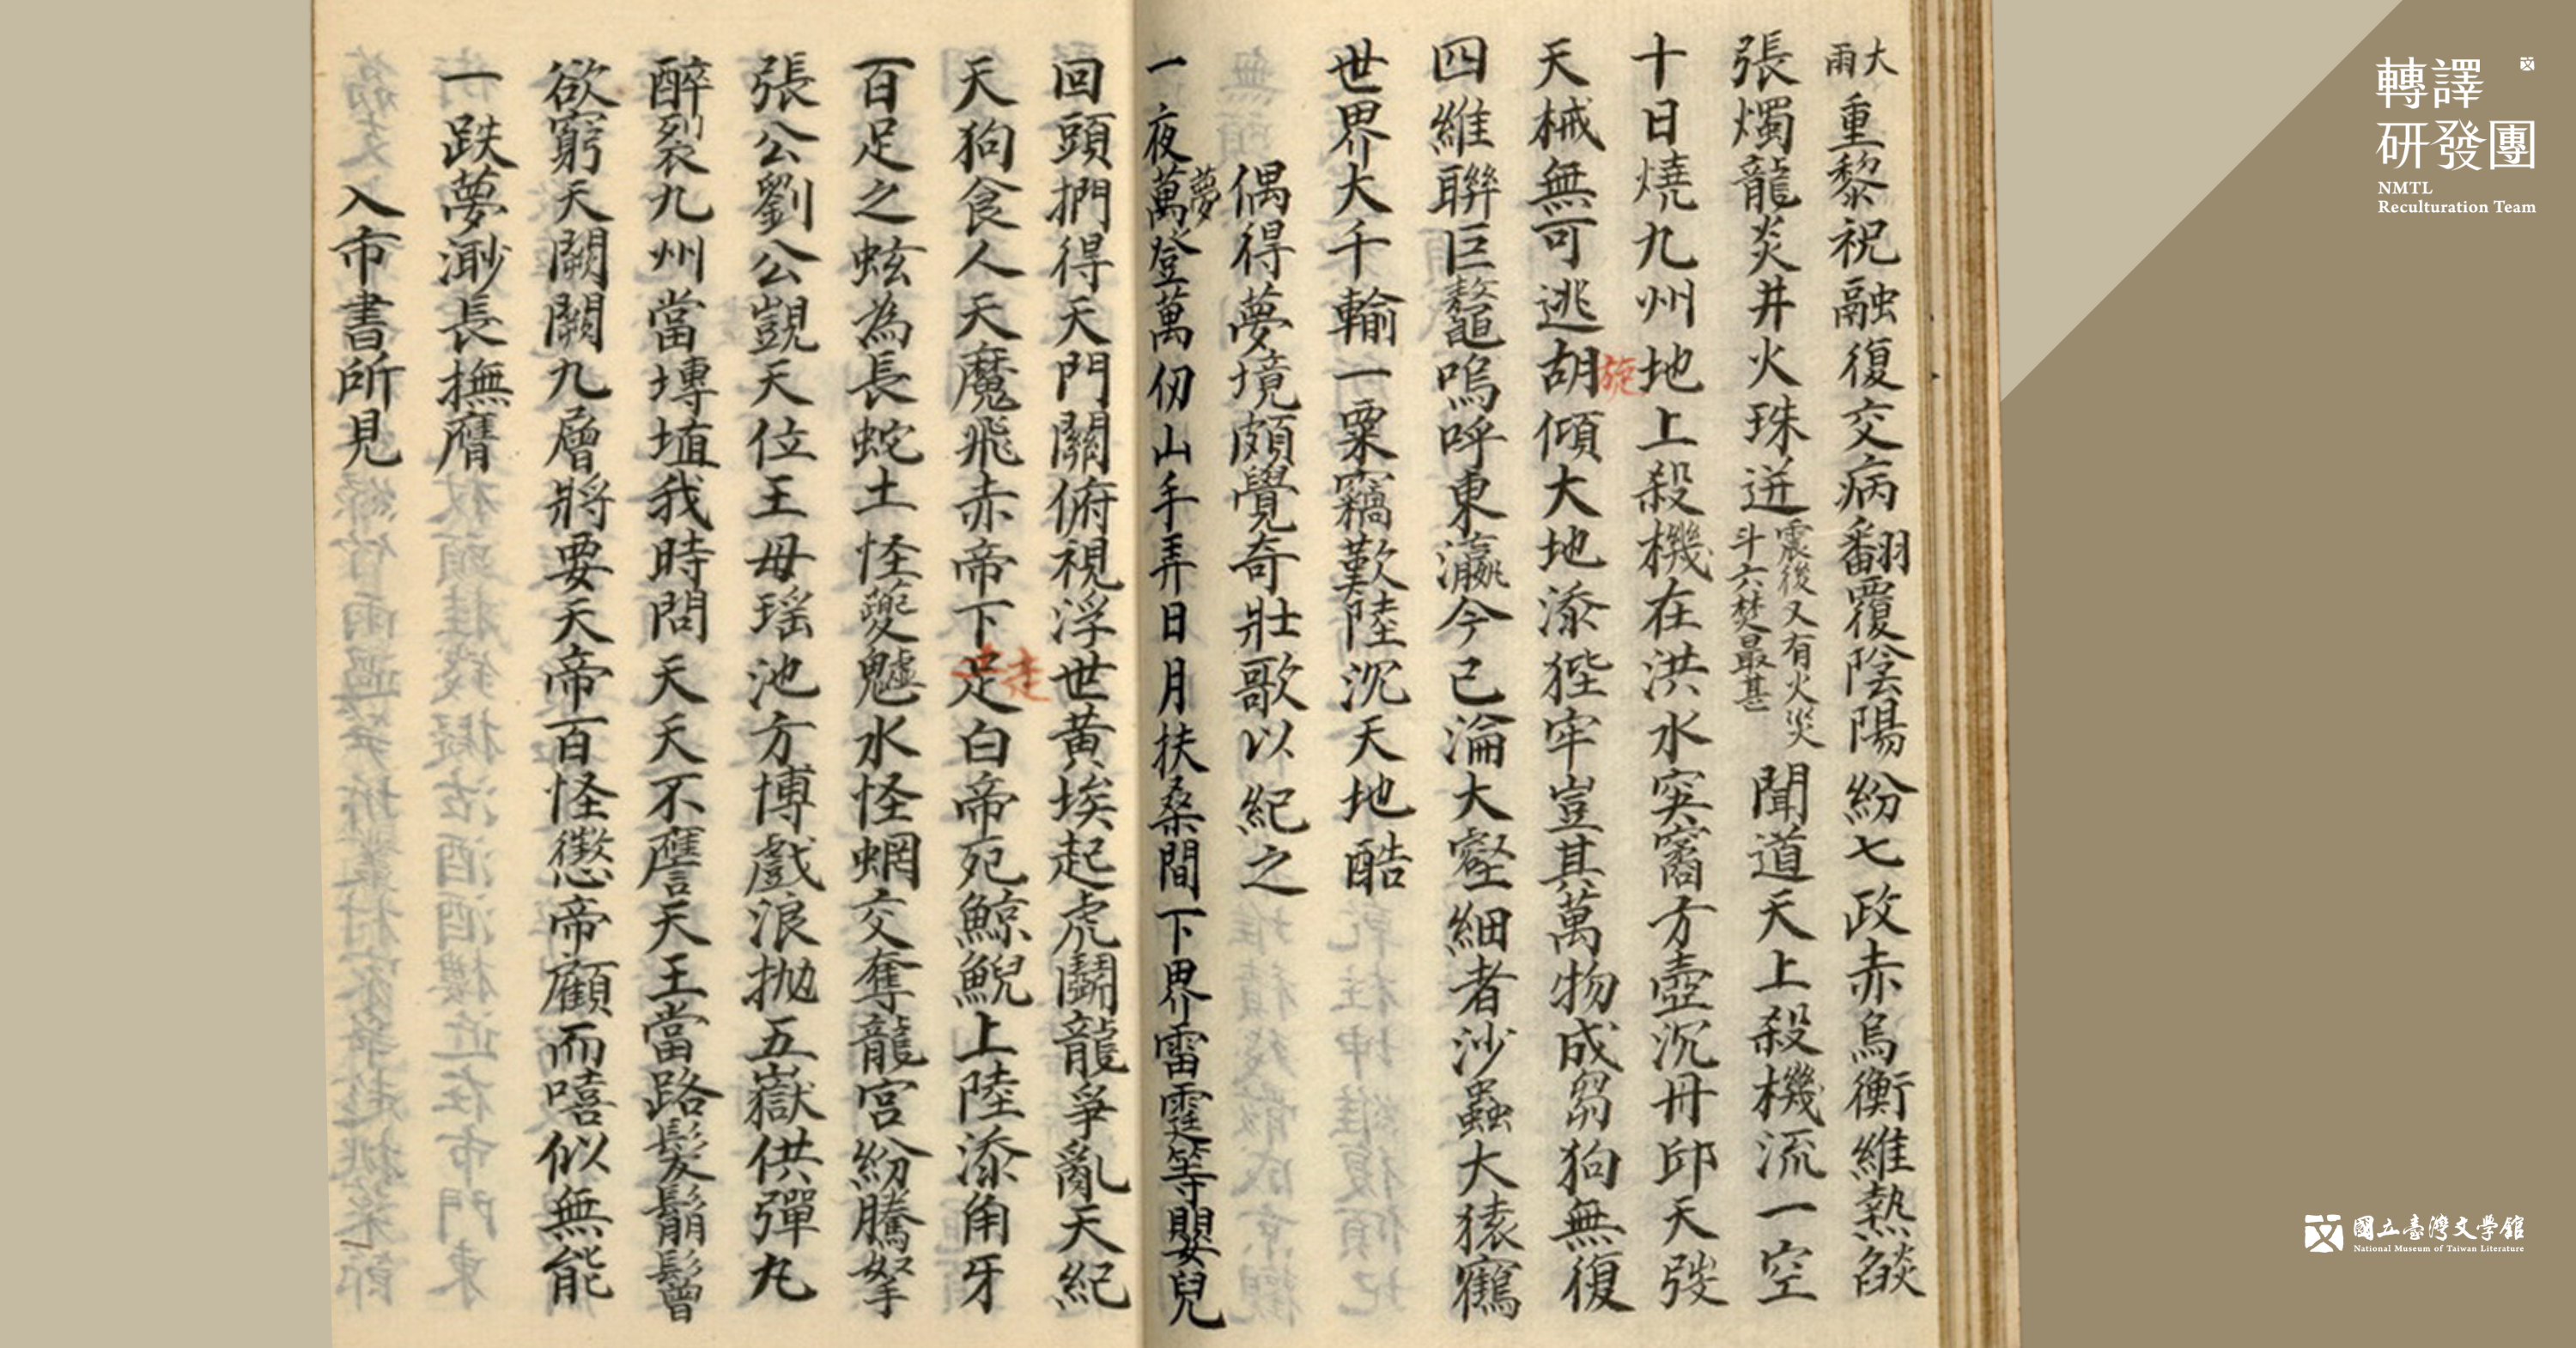 大雨重黎祝融復交病翻覆陰陽紛七政赤烏衡維熱燄
張燭龍炎井火珠迸震後又有火災斗六焚最甚聞道天上殺機流一空
十日燒九州地上殺機在洪水突窩方壺沉丹邱天弢
天械無可逃胡旋傾大地添狴牢豈其萬物成芻狗無復
四維聯巨鼇嗚呼東瀛今已淪大壑細者沙蟲大猿鶴
世界大千輸一粟竊歎陸沉天地酷
偶得夢境頗覺奇壯歌以紀之
一夜夢登萬仞山手弄日月扶桑間下界雷霆等嬰兒
回頭捫得天門關俯視浮世黃埃起虎鬪龍爭亂天紀
天狗食人天魔飛赤帝下走白帝死鯨鯢上陸添角牙
百足之蚿為長蛇土怪夔魖水怪蜩交奪龍宮紛騰拏
張公劉公覬天位王母瑤池方博戲浪拋五嶽供彈丸
醉裂九州當塼埴我時問天天不譍天王當路髮鬅鬙
欲窮天闕闕九層將要天帝百怪懲帝顧而嘻似無能
一跌夢渺長撫膺
入市書所見
轉譯
研發團
NMTL
Reculturation Team
國立臺灣文學館
National Museum of Taiwan Literature